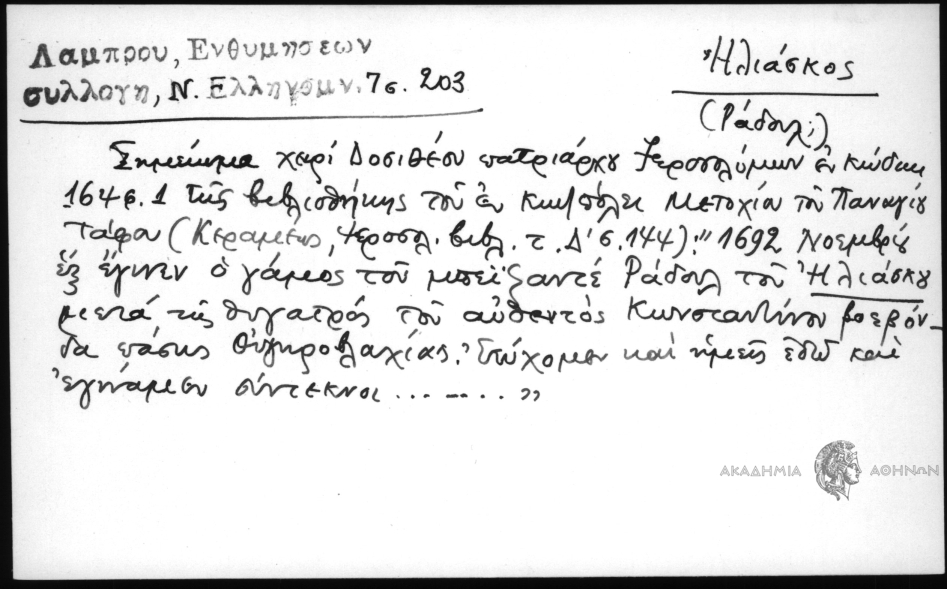 Λαμπρου, Ενθυμησεων
συλλογη, Ν. Ελληνομν. 7 σ. 203
Ἠλιάσκος
(Ράδουλ;)
Σημείωμα χειρί Δοσιθέου πατριάρχου Ἱεροσολύμων ἐν κώδικι
164 φ. 1 τῆς βιβλιοθήκης τοῦ ἐν Κων/πόλει Μετοχίου τοῦ Παναγίου
Τάφου (Κεραμέως, Ἱεροσολ. βιβλ. τ. Δ' σ. 144): "1692 Νοεμβρίου
ἕξ ἔγινεν ὁ γάμος τοῦ μπεϊζαντέ Ράδουλ τοῦ Ἠλιάσκου
μετά τῆς θυγατρός τοῦ αὐθεντός Κωνσταντίνου βοεβόν-
δα πάσης Οὐγγροβλαχίας. Ἐτύχομεν καί ἡμεῖς ἐδῶ καί
ἐγινάμεσυ σύντεκνοι ........ "
ΑΚΑΔΗΜΙΑ ΑΘΗΝΩΝ